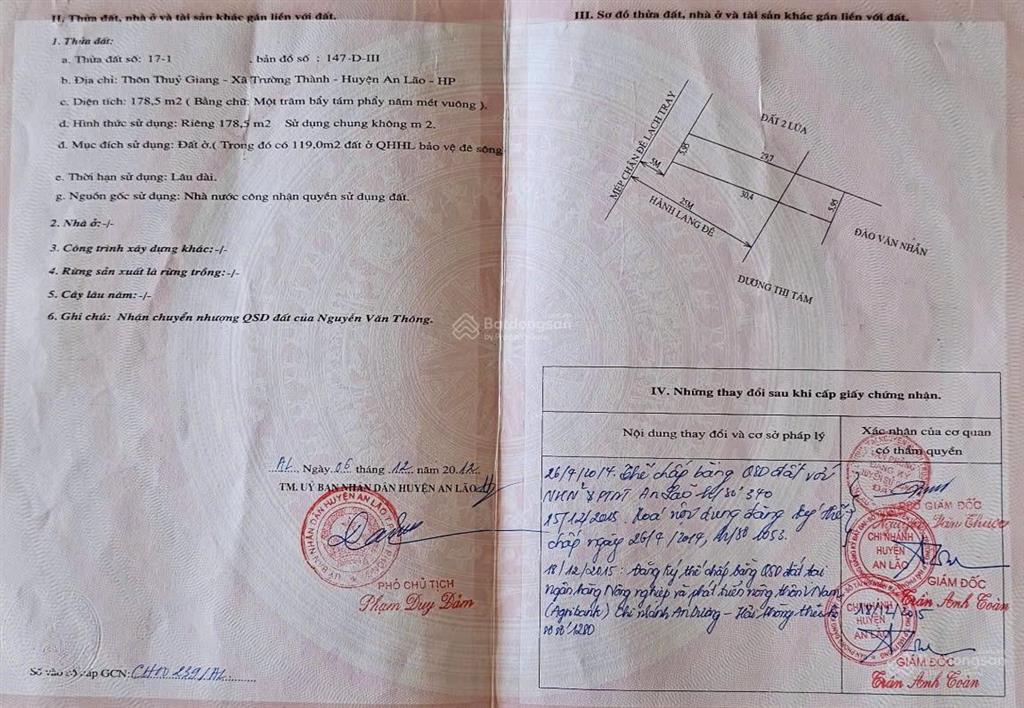 II. Thửa đất, nhà ở và tài sản khác gắn liền với đất.
1. Thửa đất:
a. Thửa đất số: 17-1 . bản đồ số : 147-D-III
b. Địa chỉ: Thôn Thuỷ Giang - Xã Trường Thành - Huyện An Lão - HP
c. Diện tích: 178,5 m2 ( Bằng chữ: Một trăm bẩy tám phẩy năm mét vuông ).
d. Hình thức sử dụng: Riêng 178,5 m2 Sử dụng chung không m 2.
đ. Mục đích sử dụng: Đất ở.( Trong đó có 119,0m2 đất ở QHHL bảo vệ đê sông
e. Thời hạn sử dụng: Lâu dài.
g. Nguồn gốc sử dụng: Nhà nước công nhận quyền sử dụng đất.
2. Nhà ở:-/-
3. Công trình xây dựng khác:-/-
4. Rừng sản xuất là rừng trồng:-/-
5. Cây lâu năm:-/-
6. Ghi chú: Nhận chuyển nhượng QSD đất của Nguyễn Văn Thông.
AL, Ngày 06 tháng 12 năm 2012
TM. UỶ BAN NHÂN DÂN HUYỆN AN LÃO
PHÓ CHỦ TỊCH
Phạm Duy Đảm
Số vào sổ cấp GCN: CH00239/AL
III. Sơ đồ thửa đất, nhà ở và tài sản khác gắn liền với đất.
MÉP CHÂN ĐÊ LẠCH TRAY
ĐẤT 2 LÚA
5,95
29,7
5M
30,4
5,95
25M
HÀNH LANG ĐÊ
ĐÀO VĂN NHẪN
DƯƠNG THỊ TÁM
Batdongsan
IV. Những thay đổi sau khi cấp giấy chứng nhận.
Nội dung thay đổi và cơ sở pháp lý
Xác nhận của cơ quan
có thẩm quyền
26/4/2014. Thế chấp bằng QSD đất với
NHNo & PTNT An Lão 340
15/12/2015. Xoá nội dung đăng ký thế
chấp ngày 26/4/2014, 1053.
18/12/2015: Đăng ký thế chấp bằng QSD đất tại
ngân hàng Nông nghiệp và phát triển nông thôn Việt Nam
(Agribank) Chi nhánh An Dương - Hải Phòng theo hồ
sơ số 1280
PHÓ GIÁM ĐỐC
CHI NHÁNH
HUYỆN
AN LÃO
GIÁM ĐỐC
Trần Anh Toàn
18/12/2015
CHI NHÁNH
HUYỆN
AN LÃO
GIÁM ĐỐC
Trần Anh Toàn